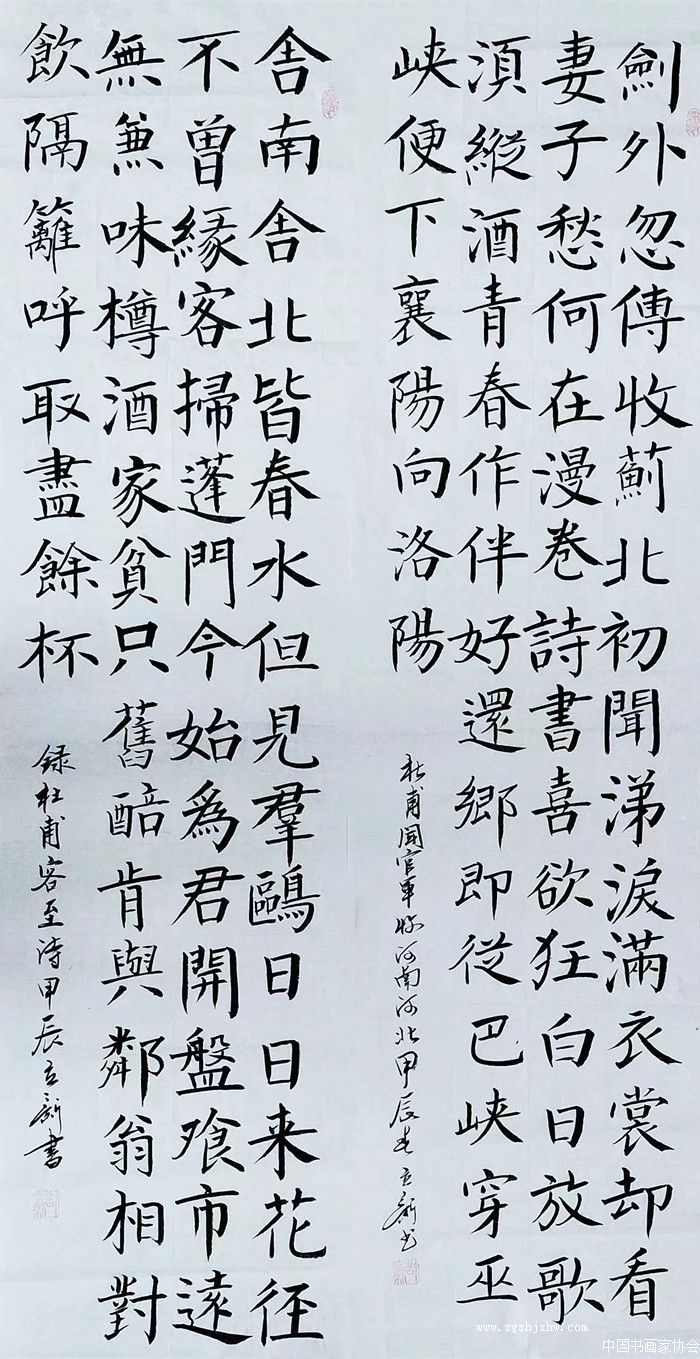 劍外忽傳收薊北初聞涕淚滿衣裳却看
妻子愁何在漫卷詩書喜欲狂白日放歌
湏縱酒青春作伴好還鄉即從巴峽穿巫
峽便下襄陽向洛陽
杜甫闻官軍收河南河北甲辰春立新书
舍南舍北皆春水但見羣鷗日日来花徑
不曾緣客掃蓬門今始爲君開盤飱市遠
無兼味樽酒家貧只舊醅肯與鄰翁相對
飲隔籬呼取盡餘杯
録杜甫客至詩甲辰立新書
www.zgshjxhw.com
中国书画家协会